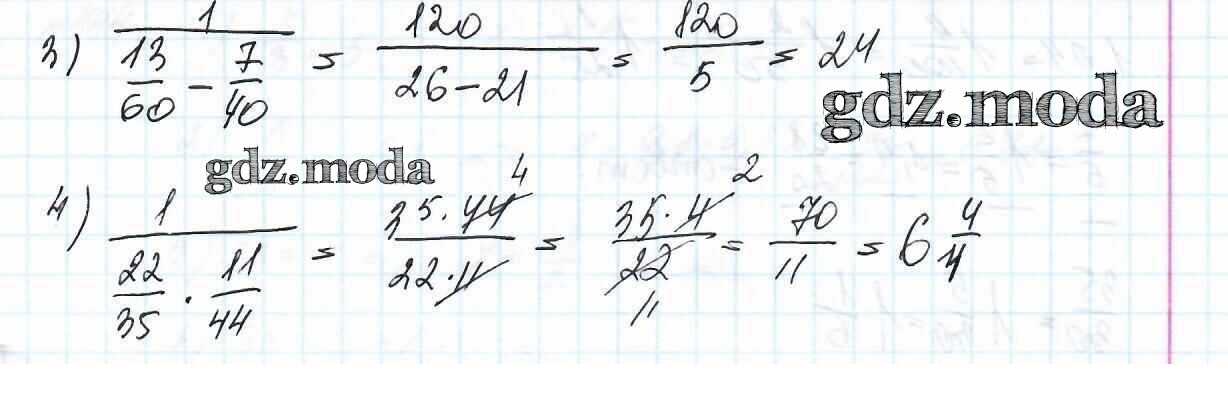 3) 1/(13/60 − 7/40) = 120/(26−21) = 120/5 = 24
gdz.moda
gdz.moda
4) 1/(22/35 · 11/44) = (35·44)/(22·11) 4 = (35·4)/22 2 11 = 70/11 = 6 4/11